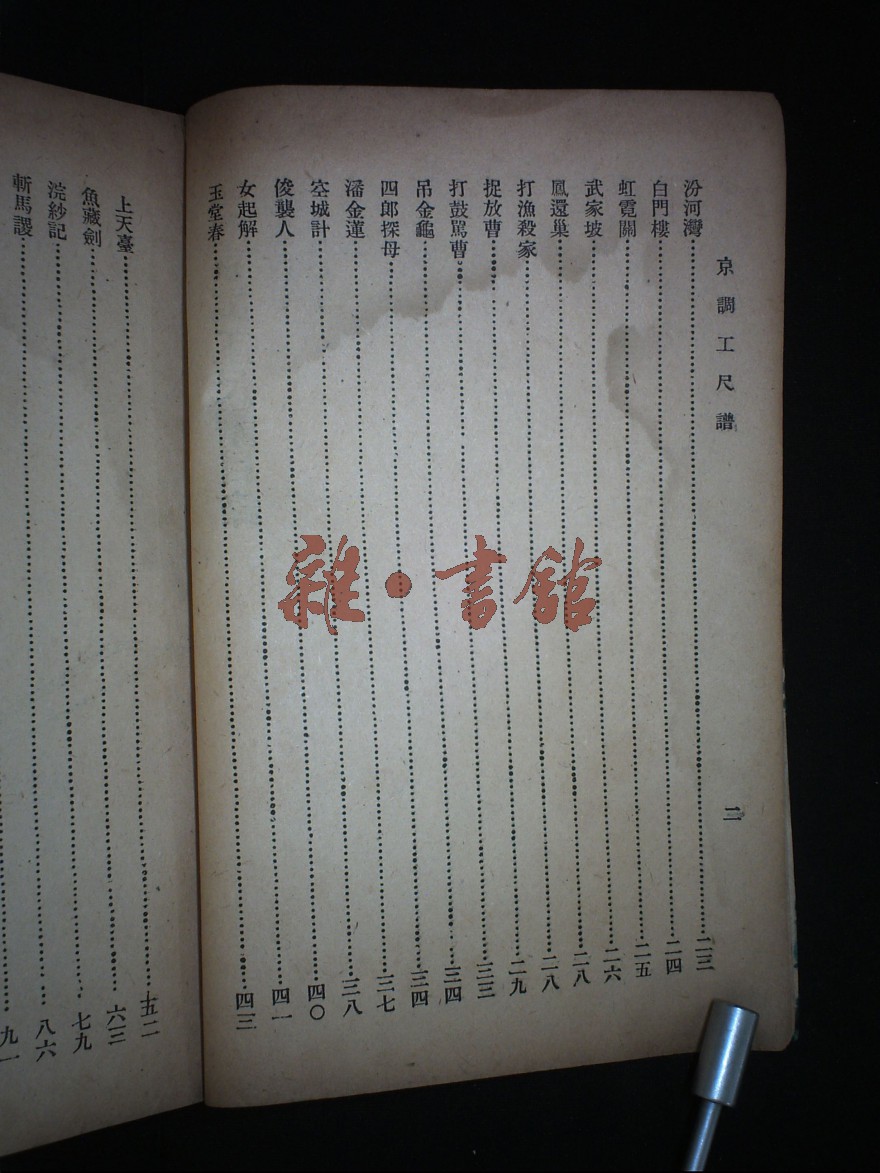 京調工尺譜 二
汾河灣……二三
白門樓……二四
虹霓關……二五
武家坡……二六
鳳還巢……二八
打漁殺家……二八
捉放曹……二九
打鼓罵曹……三三
吊金龜……三四
四郎探母……三四
潘金蓮……三七
空城計……三八
俊襲人……四〇
女起解……四一
玉堂春……四三
上天臺……五二
魚藏劍……六三
浣紗記……七九
斬馬謖……八六
九一
雜·書館